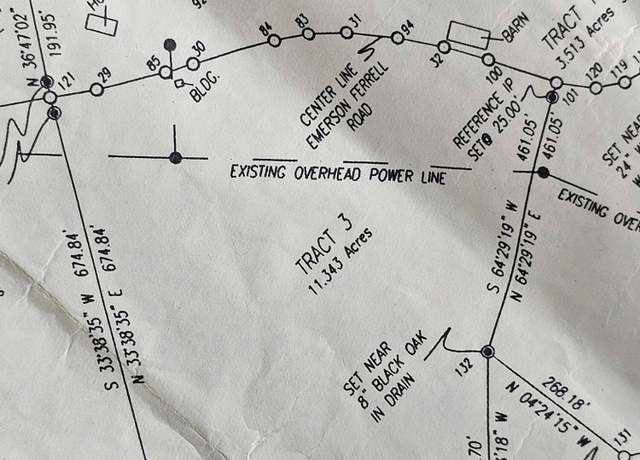 N 36°47'02"
191.95'
121
29
85
30
BLDG.
84
83
31
94
32
100
BARN
CENTER LINE
EMERSON FERRELL
ROAD
REFERENCE IP
SET@ 25.00'
TRACT
3.513 Acres
101
120
119
SET NEAR
24"
461.05'
461.05'
EXISTING OVERHEAD POWER LINE
EXISTING
S 64°29'19" W
N 64°29'19" E
TRACT 3
11.343 Acres
674.84'
674.84'
S 33°38'35" W
N 33°38'35" E
SET NEAR
8" BLACK OAK
IN DRAIN
132
268.18'
N 04°24'15" W
131
.70'
'18" W